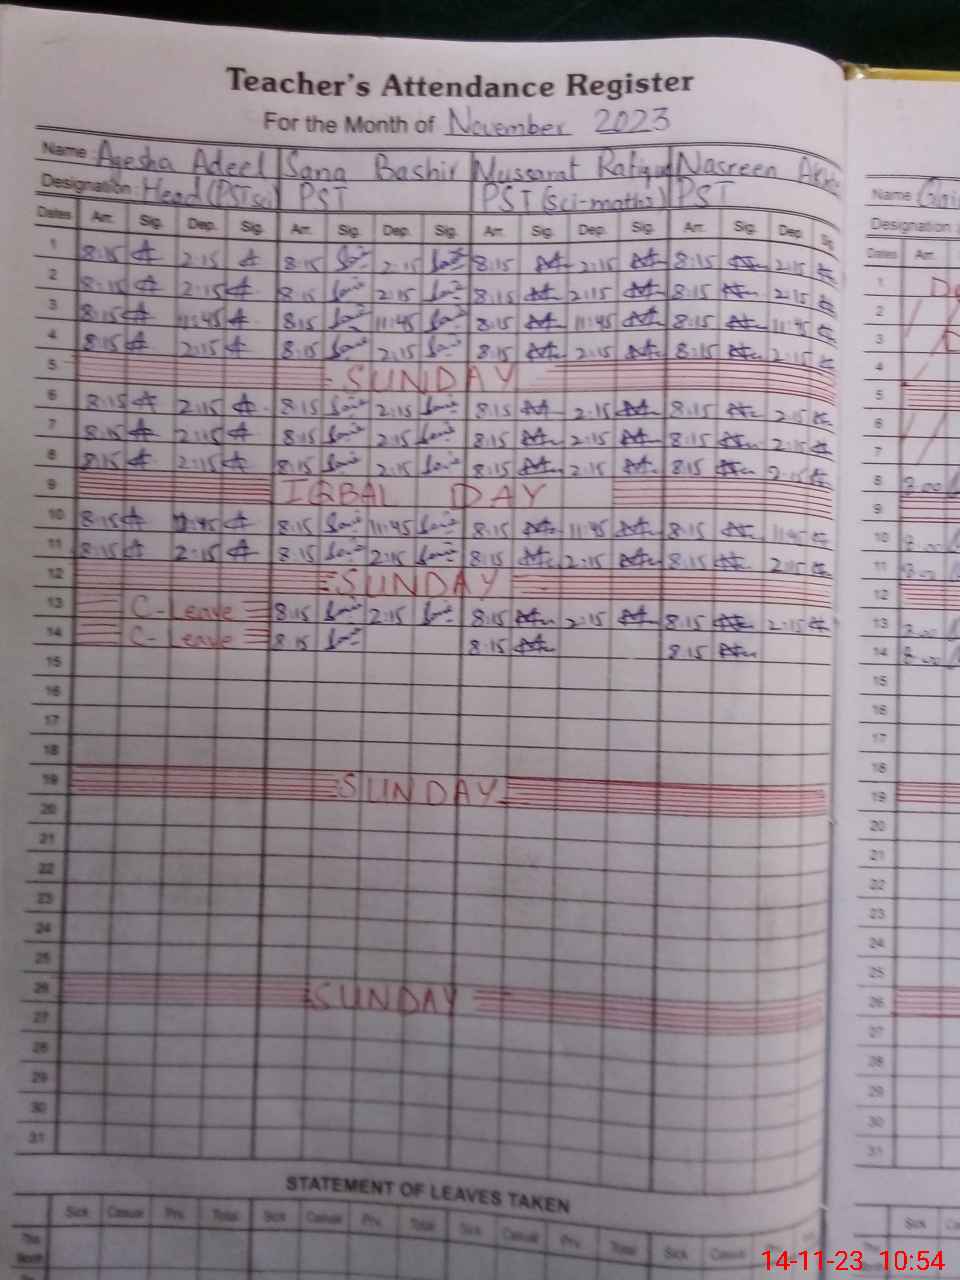 Teacher's Attendance Register
For the Month of November 2023
Name Ayesha Adeel Sana Bashir Nussarat Rafique Nasreen
Designation: Head (PST sci) PST PST (Sci-maths) PST
Dates Arr. Sig. Dep. Sig. Arr. Sig. Dep. Sig. Arr. Sig. Dep. Sig. Arr. Sig. Dep.
1 8:15 2:15 8:15 2:15 8:15 2:15 8:15 2:15
2 8:15 2:15 8:15 2:15 8:15 2:15 8:15 2:15
3 8:15 11:45 8:15 11:45 8:15 11:45 8:15 11:45
4 8:15 2:15 8:15 2:15 8:15 2:15 8:15 2:15
5 SUNDAY
6 8:15 2:15 8:15 2:15 8:15 2:15 8:15 2:15
7 8:15 2:15 8:15 2:15 8:15 2:15 8:15 2:15
8 8:15 2:15 8:15 2:15 8:15 2:15 8:15 2:15
9 IQBAL DAY
10 8:15 8:15 11:45 8:15 11:45 8:15 11:45
11 8:15 2:15 8:15 2:15 8:15 2:15 8:15 2:15
12 SUNDAY
13 C-Leave 8:15 2:15 8:15 2:15 8:15 2:15
14 C-Leave 8:15 8:15 8:15
15
16
17
18
19 SUNDAY
20
21
22
23
24
25
26 SUNDAY
27
28
29
30
31
STATEMENT OF LEAVES TAKEN
Sick Casual Prv. Total Sick Casual Prv. Total Sick Casual Prv. Total Sick Casual
This Month
Name
Designation
Dates Arr.
1
2
3
4
5
6
7
8 8:00
9
10 8:00
11 8:00
12
13 8:00
14 8:00
15
16
17
18
19
20
21
22
23
24
25
26
27
28
29
30
31
Sick
14-11-23 10:54